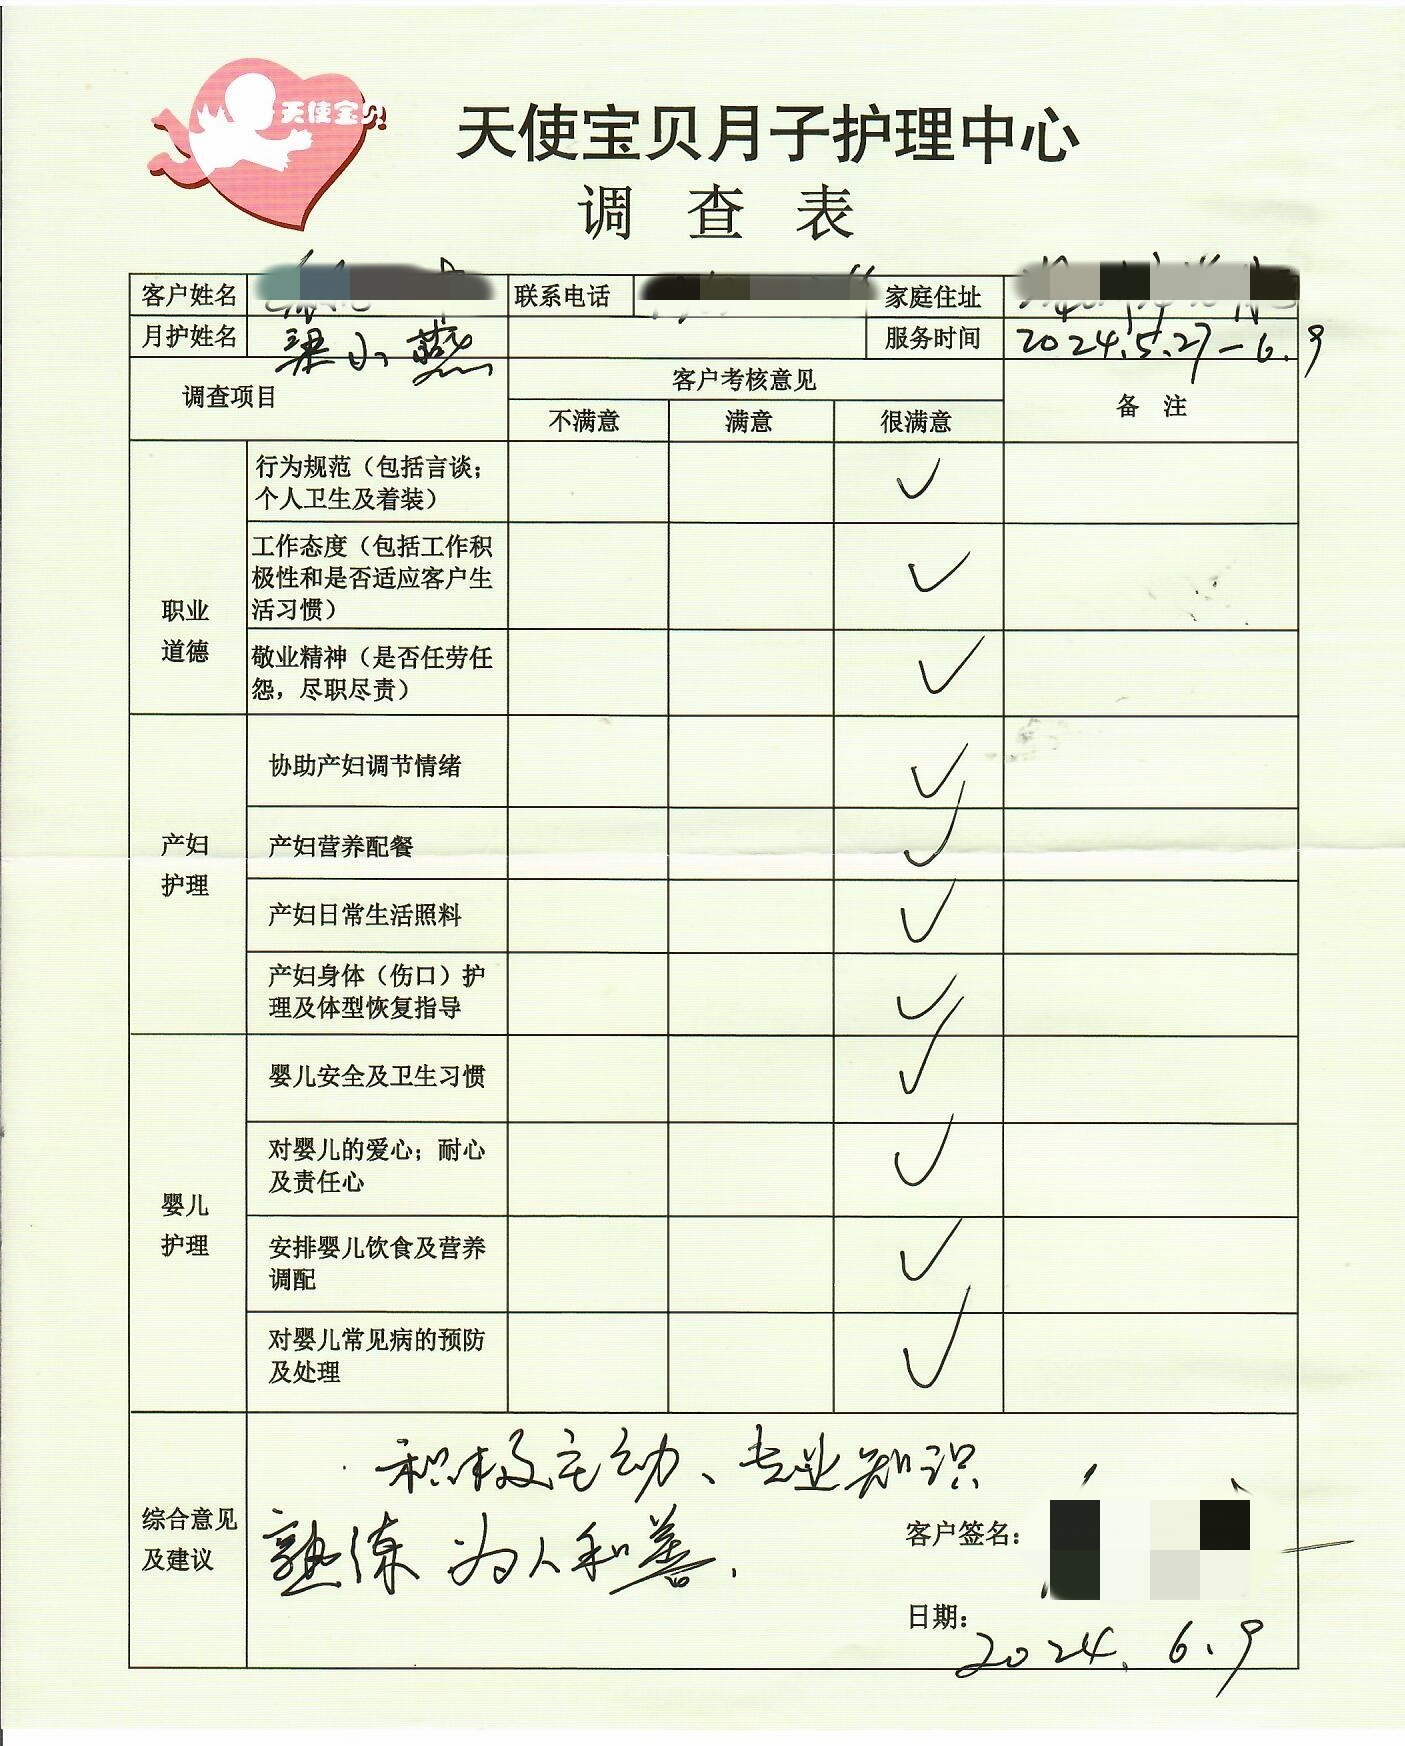 天使宝贝
天使宝贝月子护理中心
调查表
客户姓名 联系电话 家庭住址
月护姓名 梁小燕 服务时间 2024.5.27-6.9
调查项目 客户考核意见 备 注
不满意 满意 很满意
职业
道德
行为规范（包括言谈；
个人卫生及着装）
✓
工作态度（包括工作积
极性和是否适应客户生
活习惯）
✓
敬业精神（是否任劳任
怨，尽职尽责）
✓
产妇
护理
协助产妇调节情绪 ✓
产妇营养配餐 ✓
产妇日常生活照料 ✓
产妇身体（伤口）护
理及体型恢复指导
✓
婴儿
护理
婴儿安全及卫生习惯 ✓
对婴儿的爱心；耐心
及责任心
✓
安排婴儿饮食及营养
调配
✓
对婴儿常见病的预防
及处理
✓
综合意见
及建议
积极主动、专业知识
熟练 为人和善.
客户签名：
日期：
2024.6.9